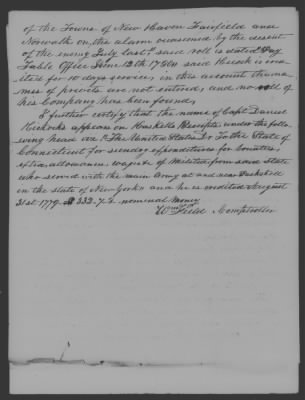 of the Towns of New Haven Fairfield and
Norwalk on the alarm occasioned by the descent
of the enemy July last" said roll is dated "Pay
Table Office June 12th 1780" said Hecock is cre-
dited for 10 days service, in this account the na-
mes of privets are not entered, and no roll of
his Company has been found,
I further certify that the name of Capt Daniel
Heckocks appears on Haskells Receipts under the follo-
wing head viz "The United States Dr To the State of
Connecticut for sundry expenditures for bounties,
extra allowances wages &c of Militia from said State
who served with the main Army at and near Peekskill
in the state of New York" and he is credited August
31st 1779 333.7.2 nominal money
Wm Field Comptroller